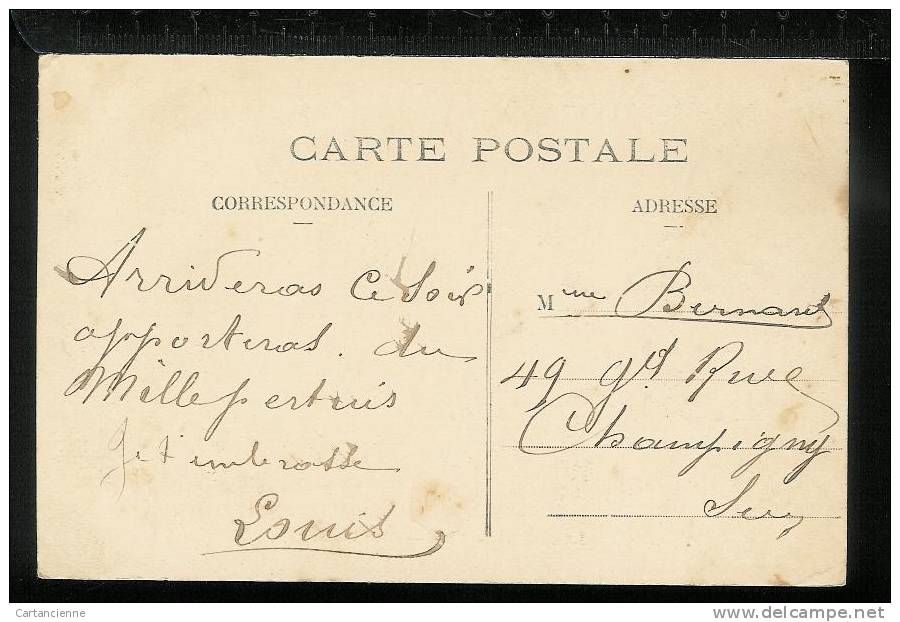 CARTE POSTALE
CORRESPONDANCE
Arriveras ce Soir
apporteras. du
Millepertuis
Je t'embrasse
Louis
ADRESSE
Mme Bernard
49 gd Rue
Champigny
Cartancienne
www.delcampe.net